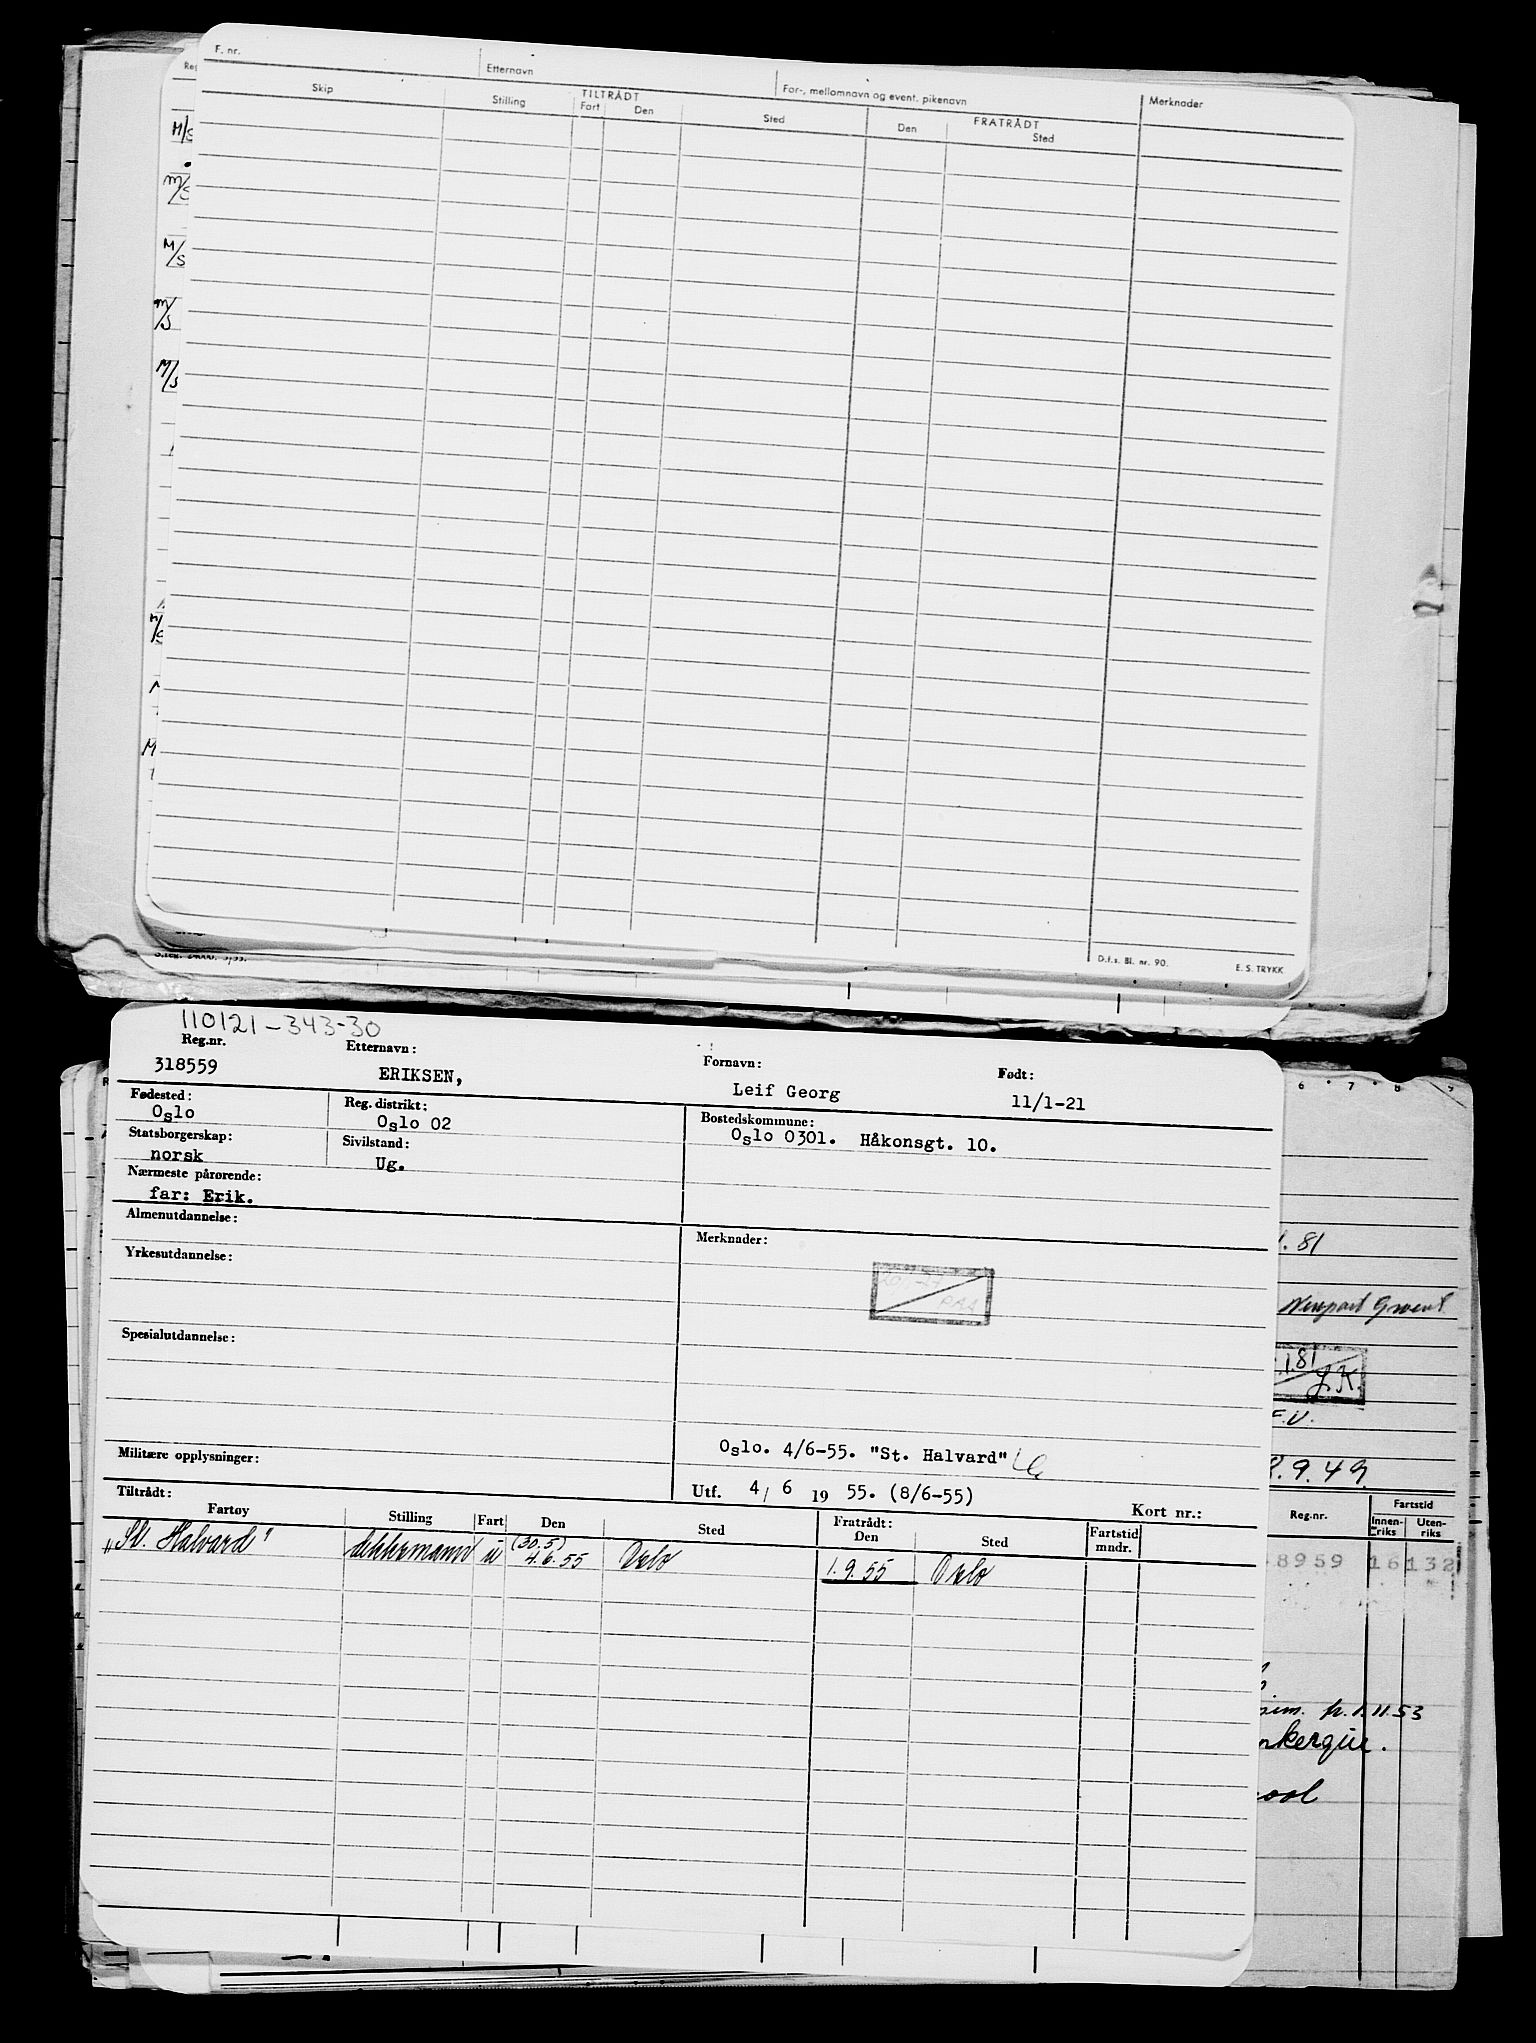 F. nr.
Etternavn
For-, mellomnavn og event. pikenavn
Merknader
Reg
Skip
Stilling
TILTRÅDT
Fart
Den
Sted
FRATRÅDT
Den
Sted
M/S
M/S
M/S
M/S
M/S
M/S
M
D.f.s. Bl. nr. 90.
E. S. TRYKK
110121-343-30
Reg.nr.
Etternavn:
Fornavn:
Født:
318559
ERIKSEN,
Leif Georg
11/1-21
Fødested:
Oslo
Reg. distrikt:
Oslo 02
Bostedskommune:
Oslo 0301. Håkonsgt. 10.
Statsborgerskap:
norsk
Sivilstand:
Ug.
Nærmeste pårørende:
far: Erik.
Almenutdannelse:
Yrkesutdannelse:
Merknader:
Spesialutdannelse:
Militære opplysninger:
Oslo. 4/6-55. "St. Halvard"
Utf. 4/ 6 19 55. (8/6-55)
Kort nr.:
Tiltrådt:
Fartøy
Stilling
Fart
Den
Sted
Fratrådt:
Den
Sted
Fartstid
mndr.
"St. Halvard"
dekksmann
u
(30.5)
4.6.55
Oslo
1.9.55
Oslo
6 7 8 9
.81
Newport
.1.81
J.K.
.9.49
Reg.nr.
Fartstid
Innen-
riks
Uten-
riks
8959
16
132
h. 1.11.53
nkerque.
ool